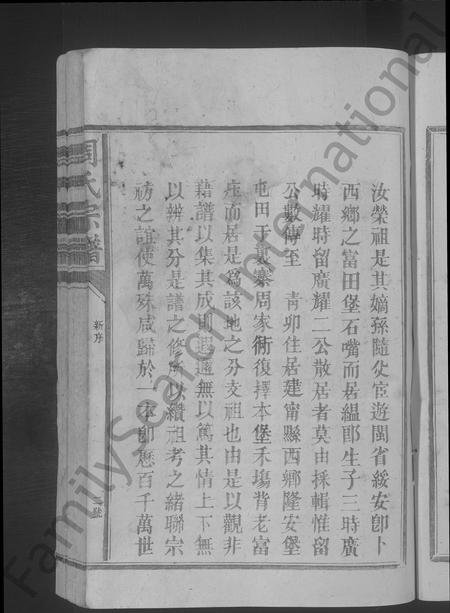 汝榮祖是其嫡孫隨父宦遊閩省綏安卽卜
西鄉之富田堡石嘴而居縕郎生子三時廣
時耀時留廣耀二公散居者莫由採輯惟留
公數傳至 青卯住居建甯縣西鄉隆安堡
屯田于寨周家衕復擇本堡禾塲背老富
庄而居是爲該地之分支祖也由是以觀非
藉譜以集其成則遐邇無以篤其情上下無
以辨其分是譜之修所以纘祖考之緒聯宗
祊之誼使萬殊咸歸於一本卽歷百千萬世
周氏宗譜
新序
號
FamilySearch International